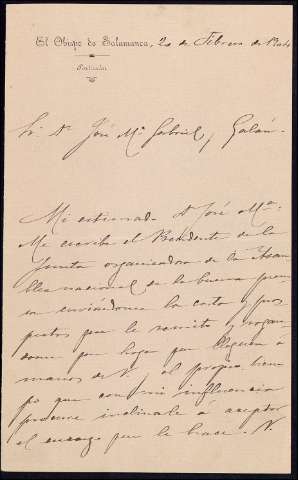 El Obispo de Salamanca, 20 de Febrero de 1904
Particular
Sr. Dn. José Mª Gabriel y Galán.
Mi estimado Dn José Mª:
Me escribe el Presidente de la
Junta organizadora de la Asam-
blea nacional de la buena pren-
sa enviándome la carta y pros-
pectos que le remito y rogán-
dome que haga que lleguen á
manos de V. y al propio tiem-
po que con mi influencia
procure inclinarle á aceptar
el encargo que le hace. V.